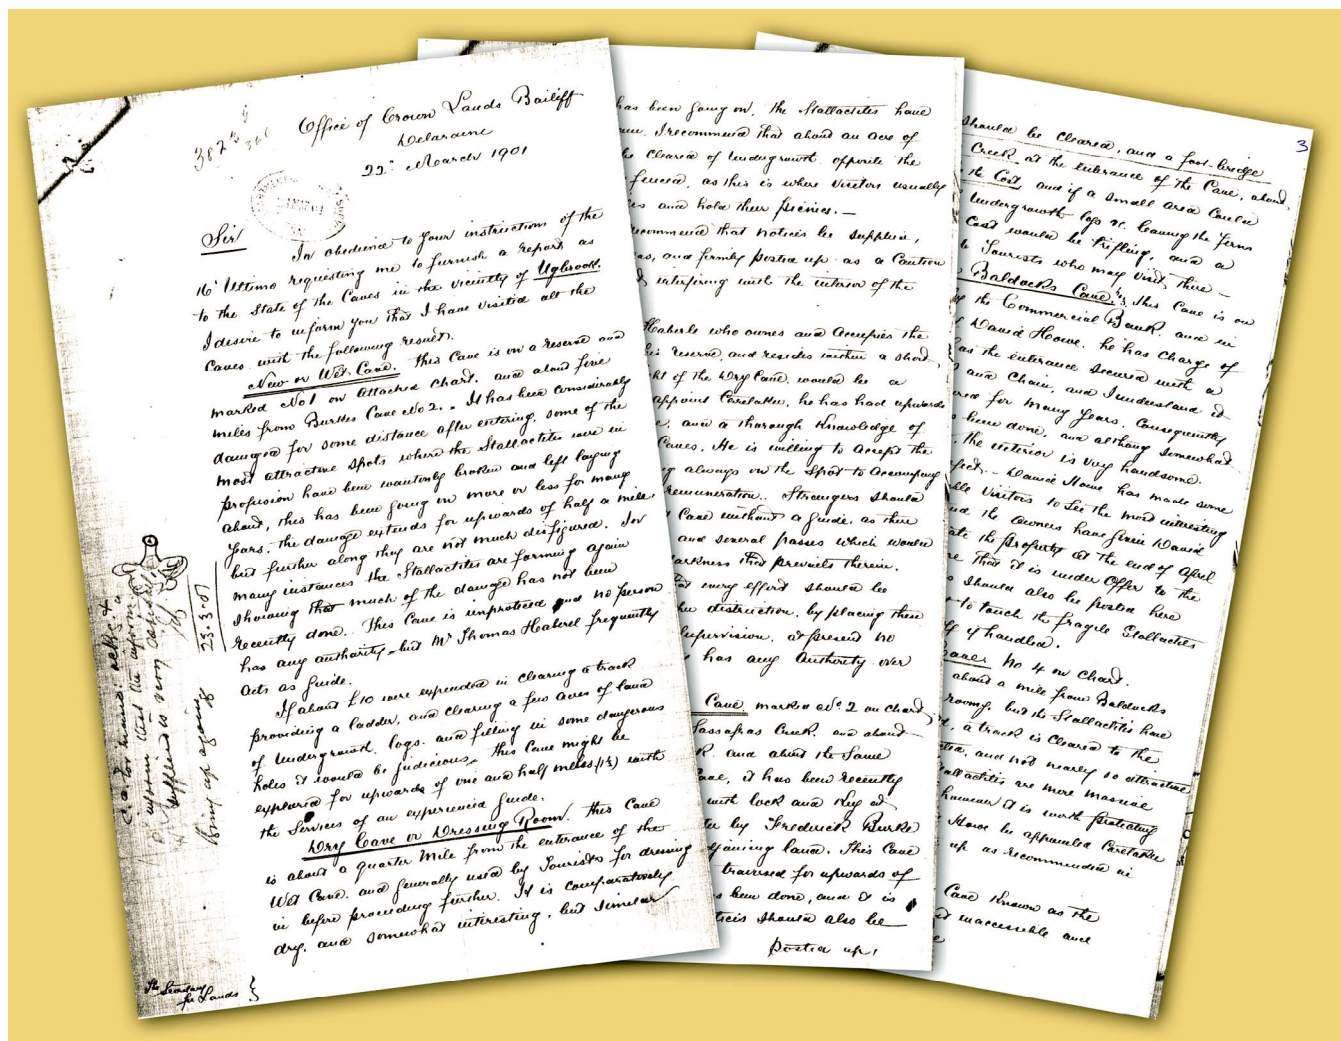 Office of Crown Lands Bailiff
Deloraine
22nd March 1901
Sir
In obedience to your instructions of the
16th Ultimo requesting me to furnish a report as
to the State of the Caves in the vicinity of Ugbrook.
I desire to inform you that I have visited all the
Caves with the following result.
New or Wet Cave. This Cave is on a reserve and
marked No 1 on attached chart. and about five
miles from Burkes Cave No 2. It has been considerably
damaged for some distance after entering, some of the
most attractive spots where the Stallactites were in
profusion have been wantonly broken and left laying
about, this has been going on more or less for many
years. the damage extends for upwards of half a mile
but further along they are not much disfigured. In
many instances the Stallactites are forming again
showing that much of the damage has not been
recently done. This Cave is unprotected and no person
has any authority - but Mr Thomas Haberel frequently
acts as guide.
If about £10 were expended in clearing a track
providing a ladder, and clearing a few acres of land
of Undergrowth, logs. and filling in some dangerous
holes it would be judicious. this Cave might be
explored for upwards of one and half miles (1½) with
the Services of an experienced guide.
Dry Cave or Dressing Room. This Cave
is about a quarter mile from the entrance of the
Wet Cave. and generally used by Tourists for dressing
in before proceeding further. It is comparatively
dry. and somewhat interesting, but similar
The Secretary
for Lands
23-3-01
bring up again
has been going on. the Stallactites have
I recommend that about an acre of
be cleared of undergrowth opposite the
fenced, as this is where visitors usually
and hold their picnics. -
recommend that notices be supplied,
and firmly posted up as a Caution
interfering with the interior of the
Haberle who owns and occupies the
his reserve, and resides within a short
of the Dry Cave. would be a
appoint Caretaker, he has had upwards
and a thorough knowledge of
Caves. He is willing to accept the
always on the Spot to accompany
remuneration. Strangers should
Cave without a guide, as there
and several passes which would
darkness that prevails therein.
that every effort should be
destruction, by placing these
Supervision, at present no
has any Authority over
Cave marked No 2 on chart,
Sassafras Creek, and about
and about the Same
Cave, it has been recently
with lock and key
by Frederick Burke
adjoining land. This Cave
traversed for upwards of
been done, and it is
notices should also be
posted up,
3
should be cleared, and a foot-bridge
Creek at the entrance of the Cave, about
the Cost and if a small area
undergrowth logs &c. leaving the ferns
Cost would be trifling, and a
Tourists who may visit there -
Baldocks Cave No 3, this Cave is on
the Commercial Bank. and in
David Howe. he has charge of
has the entrance secured with a
and Chain, and I understand it
for many years, Consequently
been done, and although somewhat
the interior is very handsome.
David Howe has made some
Visitors to see the most interesting
the owners have given David
the property at the end of April
that it is under Offer to the
should also be posted here
to touch the fragile Stallactites
if handled.
No 4 on Chart.
about a mile from Baldocks
roomy. but the Stallactites have
a track is cleared to the
and not nearly so attractive
Stallactites are more massive
however it is worth protecting
Howe be appointed Caretaker
up as recommended in
Cave Known as the
inaccessible and